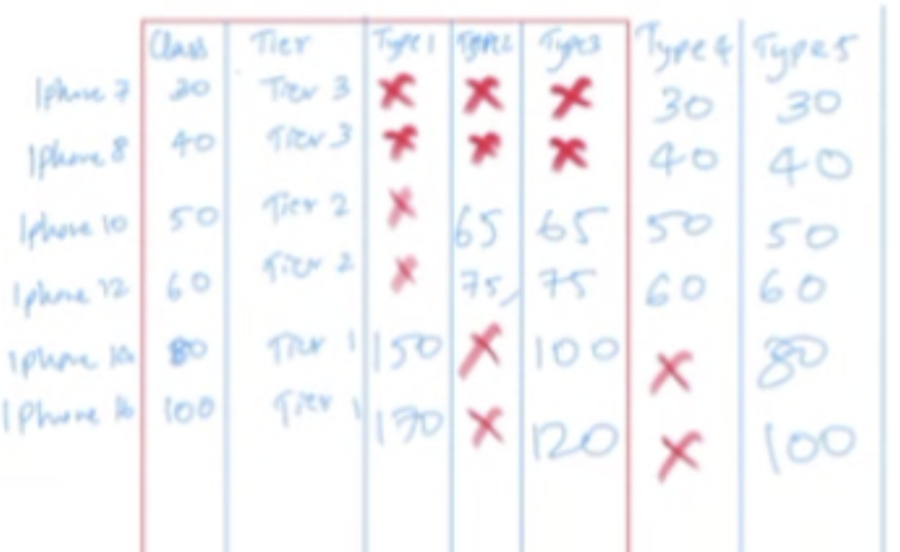 Class Tier Type 1 Type 2 Type 3 Type 4 Type 5
Iphone 7 30 Tier 3 x x x 30 30
Iphone 8 40 Tier 3 x x x 40 40
Iphone 10 50 Tier 2 x 65 65 50 50
Iphone 12 60 Tier 2 x 75, 75 60 60
Iphone 80 Tier 1 150 x 100 x 80
IPhone 100 Tier 1 170 x 120 x 100